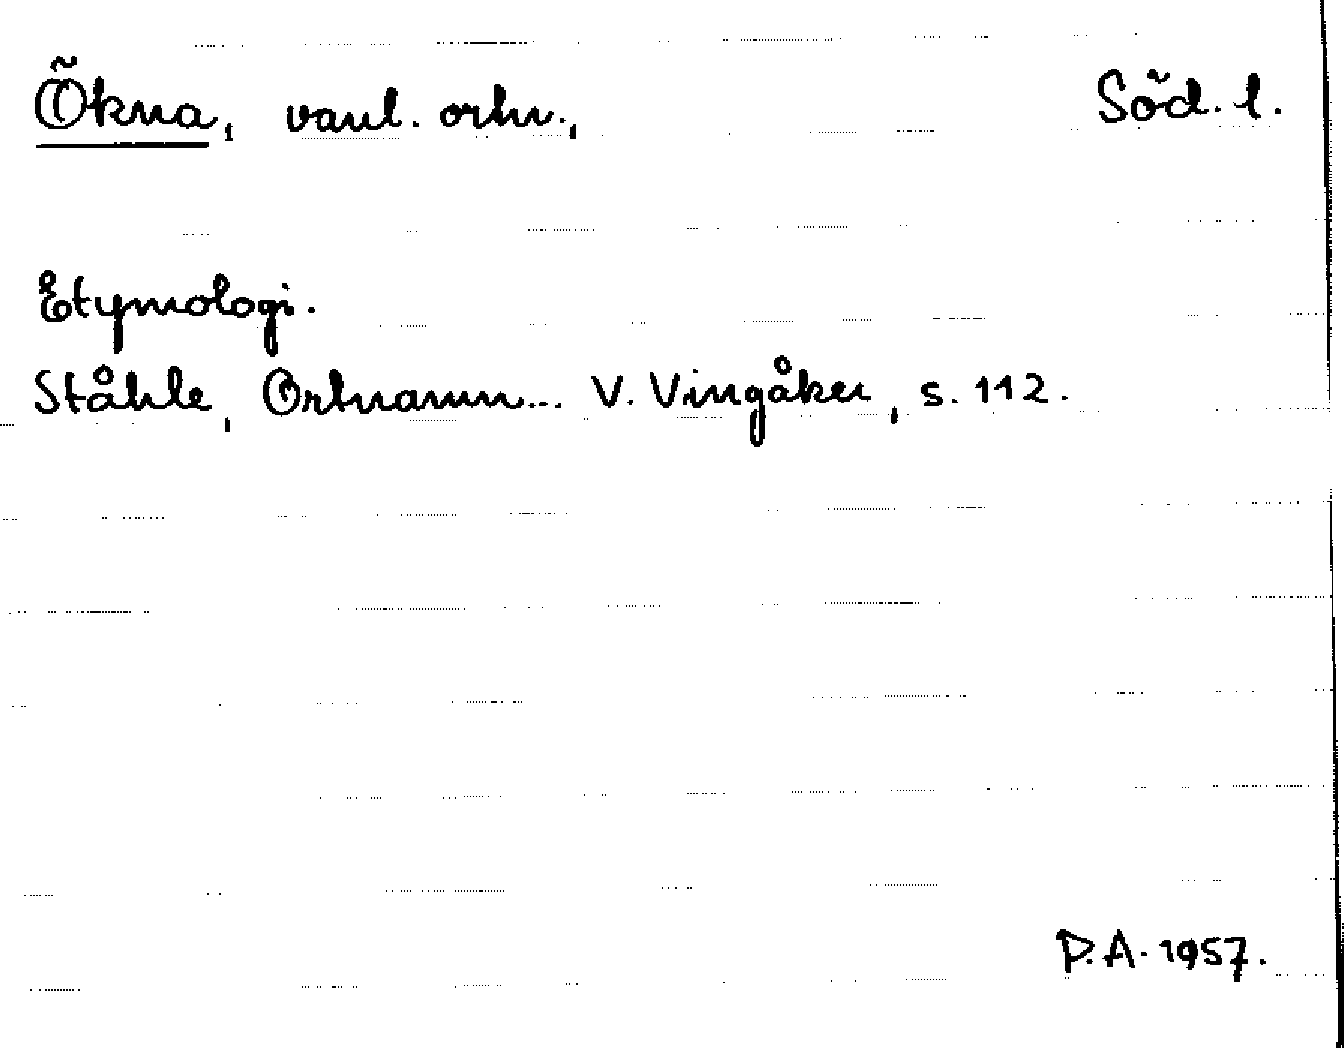 Ökna, vanl. ortn., Söd. l.
Etymologi.
Ståhle, Ortnamn... V. Vingåker, s. 112.
P.A. 1957.